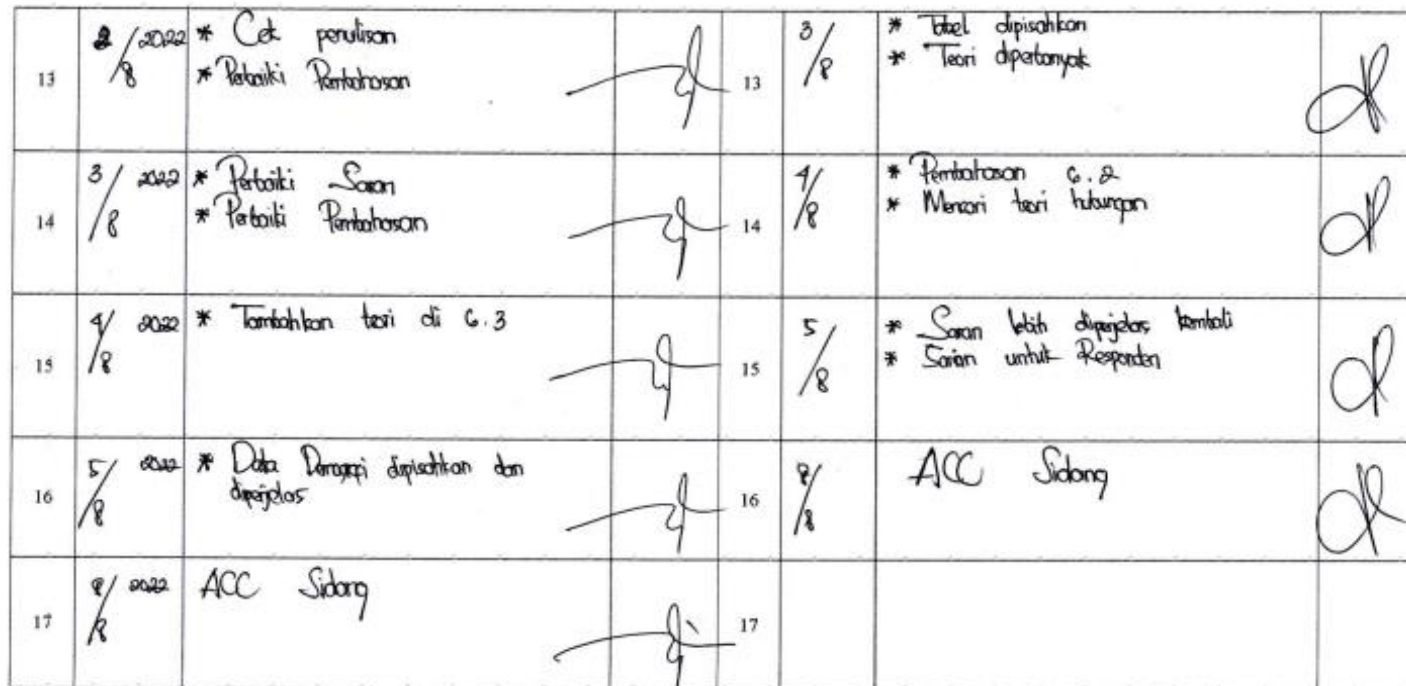 13 2/8 2022 * Cek penulisan
* Perbaiki Pembahasan
13 3/8 * Tabel dipisahkan
* Teori diperbanyak
14 3/8 2022 * Perbaiki Saran
* Perbaiki Pembahasan
14 4/8 * Pembahasan 6.2
* Mencari teori hubungan
15 4/8 2022 * Tambahkan teori di 6.3
15 5/8 * Saran lebih diperjelas kembali
* Saran untuk Responden
16 5/8 2022 * Data dipisahkan dan
diperjelas
16 8/8 ACC Sidang
17 8/8 2022 ACC Sidang
17